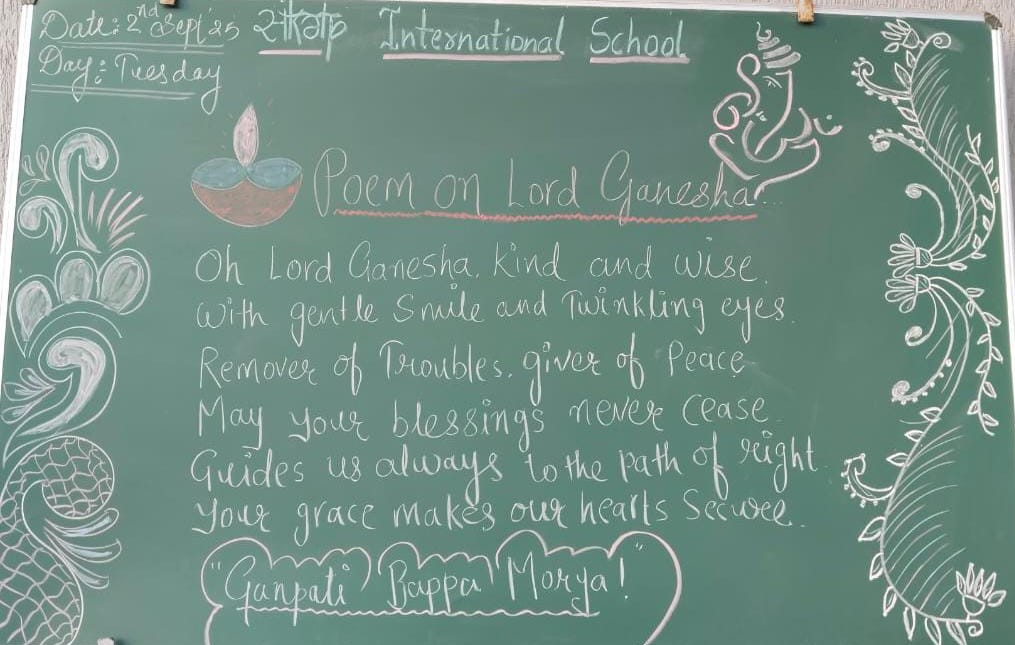 Date: 2nd Sept'25 International School
Day: Tuesday
Poem on Lord Ganesha...
Oh Lord Ganesha, Kind and wise.
With gentle Smile and Twinkling eyes.
Remover of Troubles, giver of Peace
May your blessings never cease.
Guides us always to the path of right.
Your grace makes our hearts Secure.
"Ganpati Bappa Morya!"